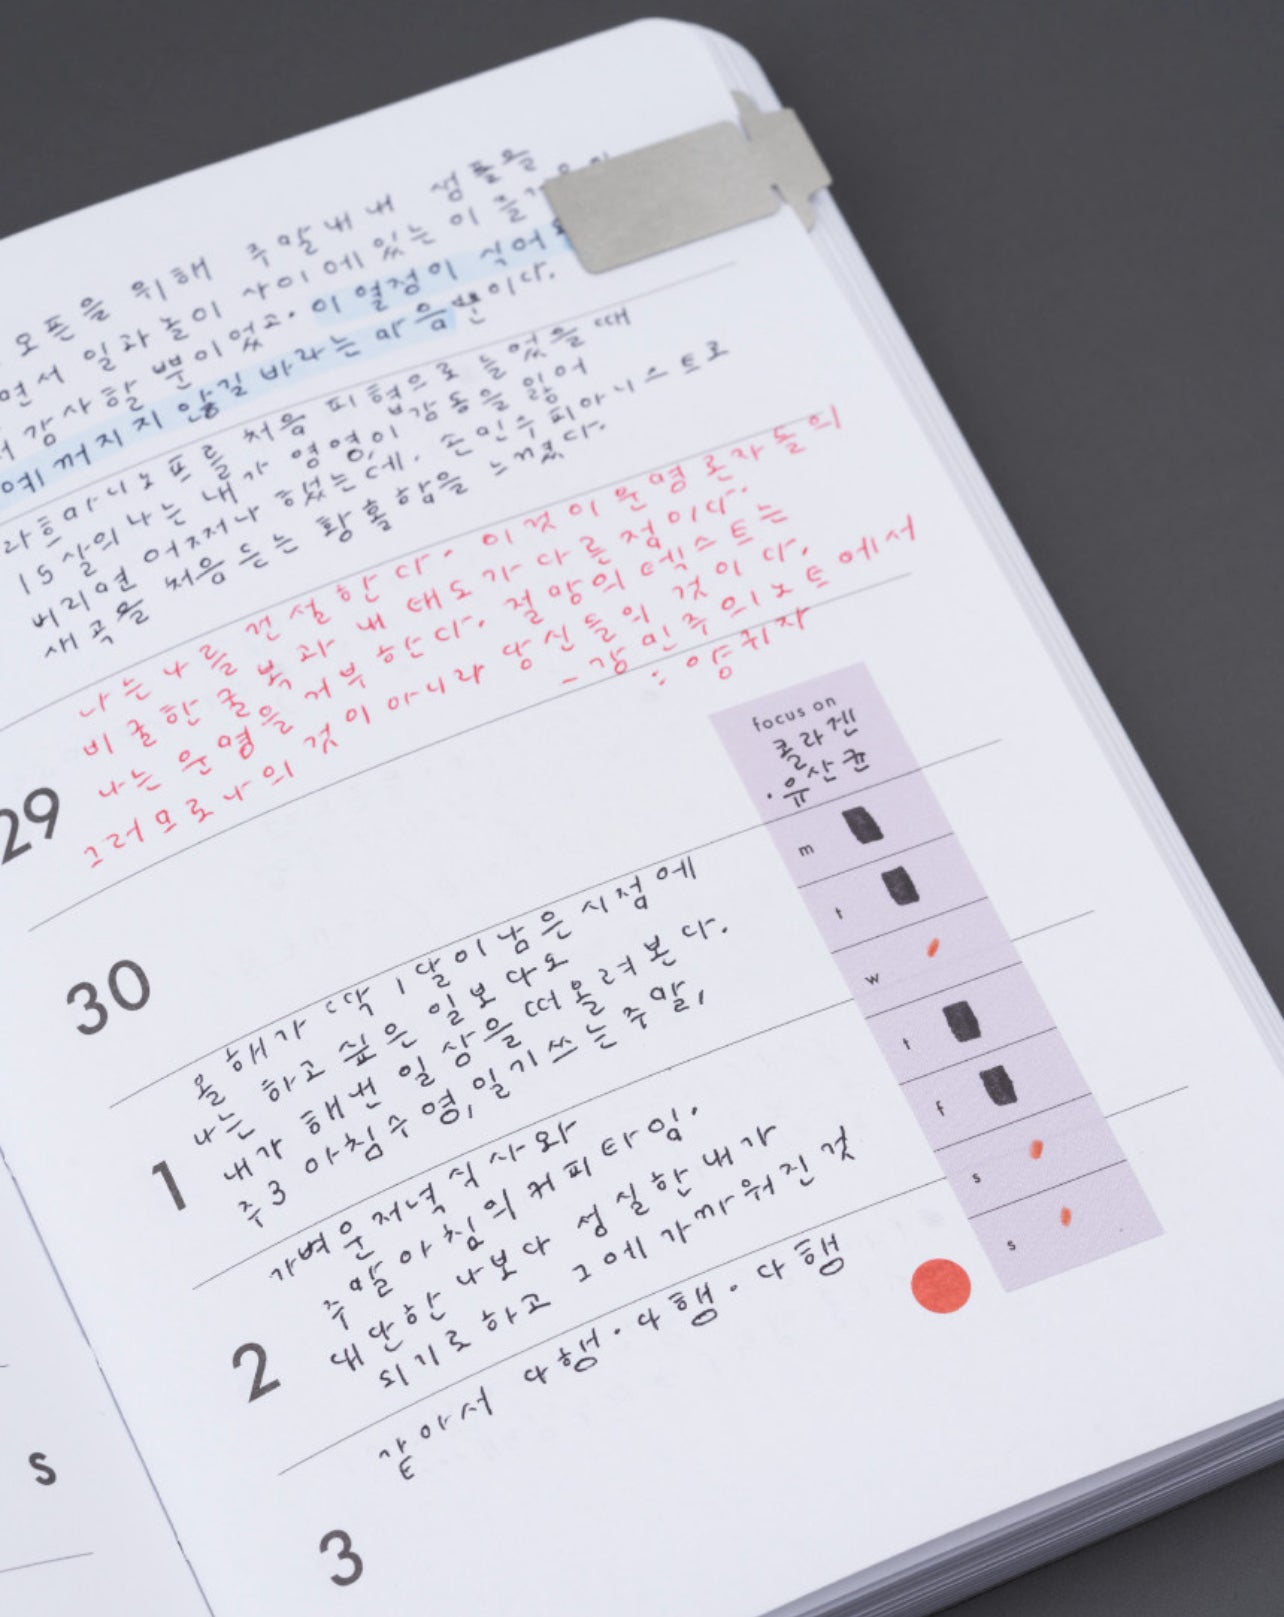 오픈을 위해 주말내내 샘플을
면서 일과 놀이 사이에 있는 이
감사할 뿐이었고. 이 열정이 식어
에 꺼지지 않길 바라는 마음뿐이다.
라흐마니노프를 처음 피협으로 들었을 때
15살의 나는 내가 영영 이 감동을 잃어
버리면 어쩌나 했는데. 손민수 피아니스트로
새 곡을 처음 듣는 황홀함을 느꼈다.
나는 나를 건설한다. 이것이 운명론자들의
비굴한 굴복과 내 태도가 다른 점이다.
나는 운명을 거부한다. 절망의 텍스트는
그러므로 나의 것이 아니라 당신들의 것이다.
- 강민주의 노트에서
: 양귀자
29
30
올해가 딱 1달이 남은 시점에
나는 하고 싶은 일보다도
내가 해낸 일상을 떠올려본다.
주3 아침수영, 일기쓰는 주말,
1
가벼운 저녁식사와
주말 아침의 커피타임.
대단한 나보다 성실한 내가
되기로 하고 그에 가까워진 것
2
같아서 다행. 다행. 다행
3
s
focus on
콜라겐
·유산균
m
t
w
t
f
s
s